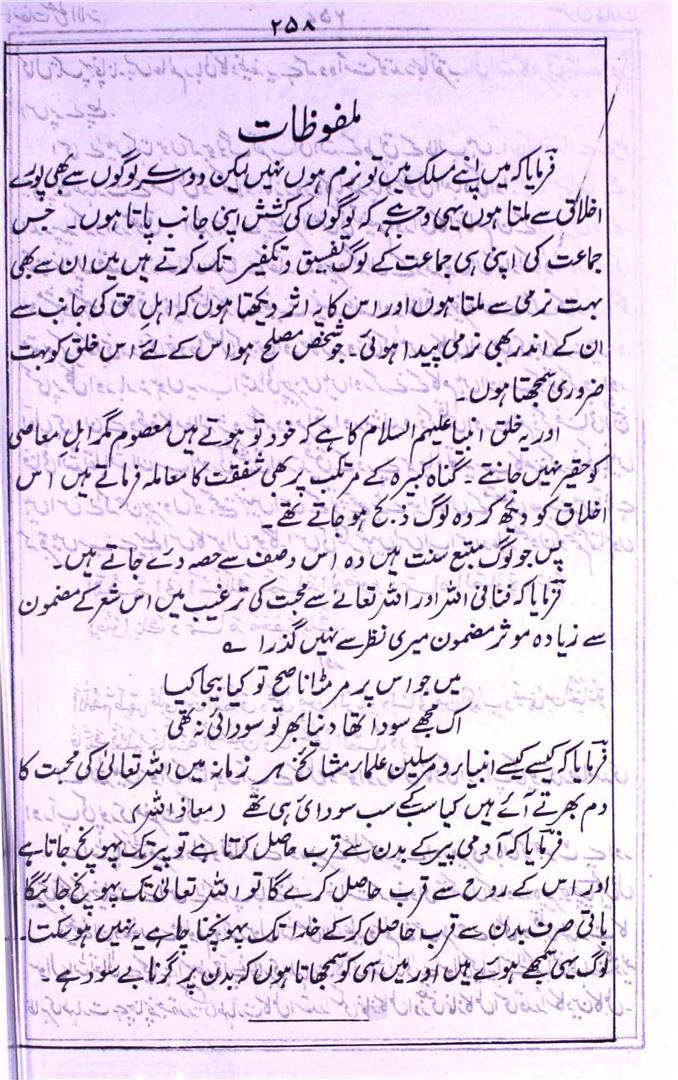 ۲۵۸
ملفوظات
فرمایا کہ میں اپنے مسلک میں تو نرم ہوں نہیں لیکن دوسرے لوگوں سے بھی پورے
اخلاق سے ملتا ہوں یہی وجہ ہے کہ لوگوں کی کشش اپنی جانب پاتا ہوں۔ جس
جماعت کی اپنی ہی جماعت کے لوگ تفسیق و تکفیر تک کرتے ہیں میں ان سے بھی
بہت نرمی سے ملتا ہوں اور اس کا یہ اثر دیکھتا ہوں کہ اہل حق کی جانب سے
ان کے اندر بھی نرمی پیدا ہوئی۔ جو شخص مصلح ہو اس کے لئے اس خلق کو بہت
ضروری سمجھتا ہوں۔
اور یہ خلق انبیا علیہم السلام کا ہے کہ خود تو ہوتے ہیں معصوم مگر اہل معاصی
کو حقیر نہیں جانتے۔ گناہ کبیرہ کے مرتکب پر بھی شفقت کا معاملہ فرماتے ہیں اس
اخلاق کو دیکھ کر وہ لوگ ذبح ہو جاتے تھے۔
پس جو لوگ متبع سنت ہیں وہ اس وصف سے حصہ دئے جاتے ہیں۔
فرمایا کہ فنا فی اللہ اور اللہ تعالےٰ سے محبت کی ترغیب میں اس شعر کے مضمون
سے زیادہ موثر مضمون میری نظر سے نہیں گذرا ؎
میں جو اس پر مر مٹا ناصح تو کیا بیجا کیا
اک مجھے سودا تھا دنیا بھر تو سودائی نہ تھی
فرمایا کہ کیسے کیسے انبیاء و مرسلین علماء مشائخ ہر زمانہ میں اللہ تعالیٰ کی محبت کا
دم بھرتے آئے ہیں کیا سب کے سب سودائی ہی تھے (معاذ اللہ)
فرمایا کہ آدمی پیر کے بدن سے قرب حاصل کرتا ہے تو پیر تک پہونچ جاتا ہے
اور اس کے روح سے قرب حاصل کرے گا تو اللہ تعالیٰ تک پہونچ جائیگا
باقی صرف بدن سے قرب حاصل کر کے خدا تک پہونچنا چاہے یہ نہیں ہو سکتا۔
لوگ یہی سمجھے ہوئے ہیں اور میں اسی کو سمجھاتا ہوں کہ بدن پر گرنا بے سود ہے۔